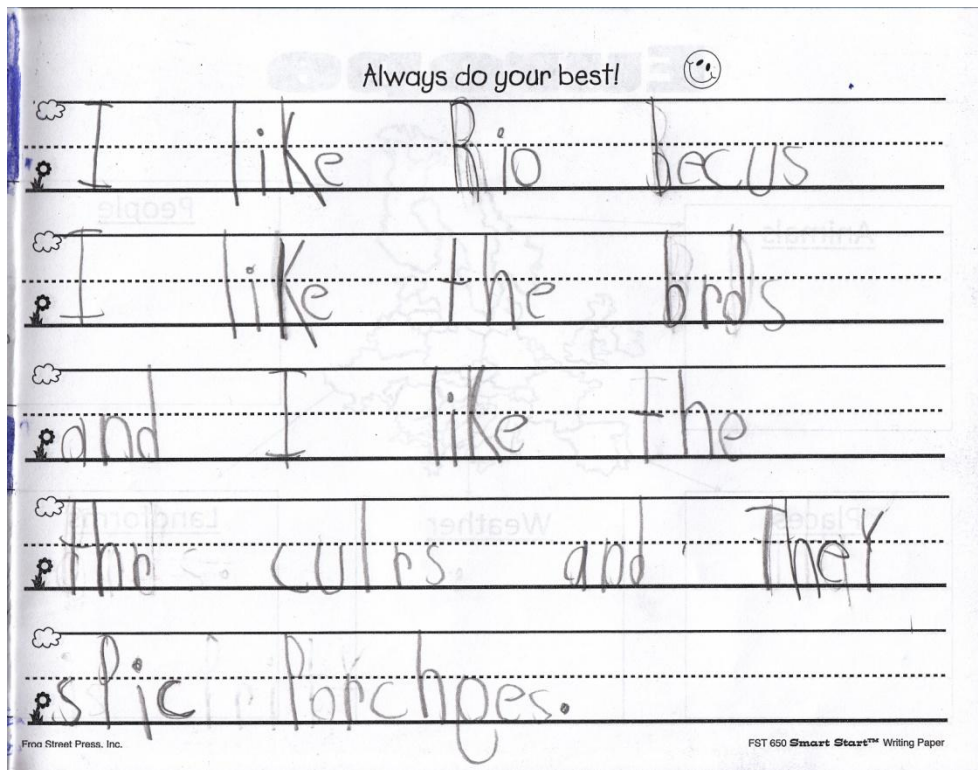 Always do your best!
I like Rio becus
I like the brds
and I like the
thr culrs. and They
spic porchges.
Frog Street Press, Inc. FST 650 Smart Start™ Writing Paper